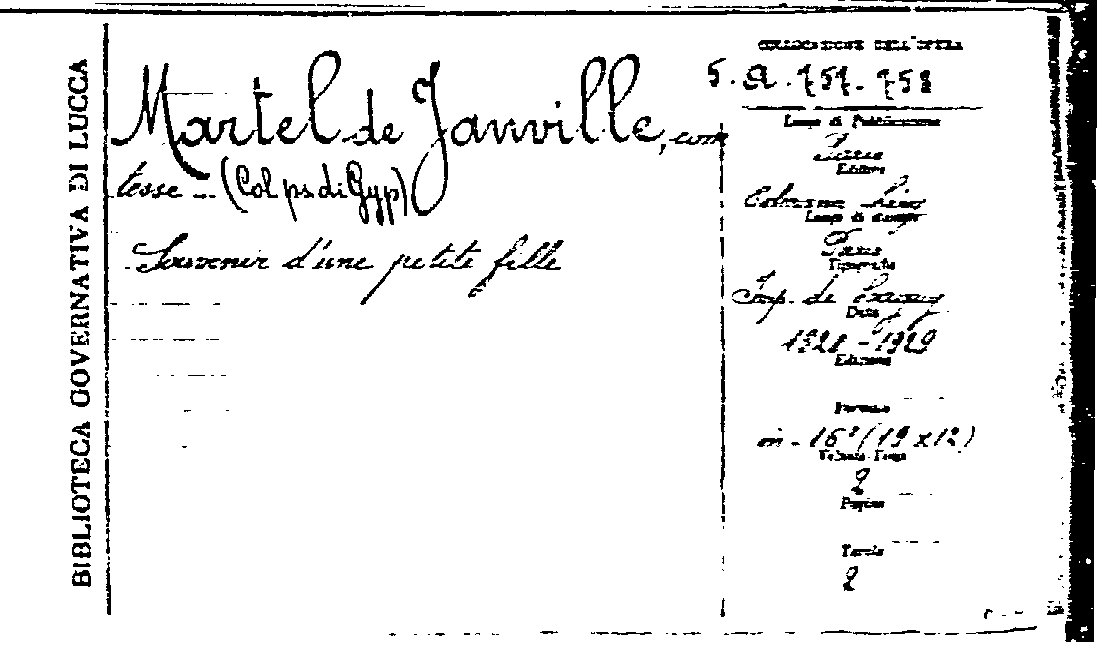 BIBLIOTECA GOVERNATIVA DI LUCCA
Martel de Janville, com
tesse - (Col ps. di Gyp)
- Souvenir d'une petite fille
COLLOCAZIONE DELL'OPERA
5. a. 757-758
Luogo di Pubblicazione
Paris
Editore
Calmann Lévy
Luogo di stampa
Paris
Tipografia
Imp. de
Data
1928 - 1929
Edizione
Formato
in - 16° (19 x 12)
2
Pagine
Tavole
2